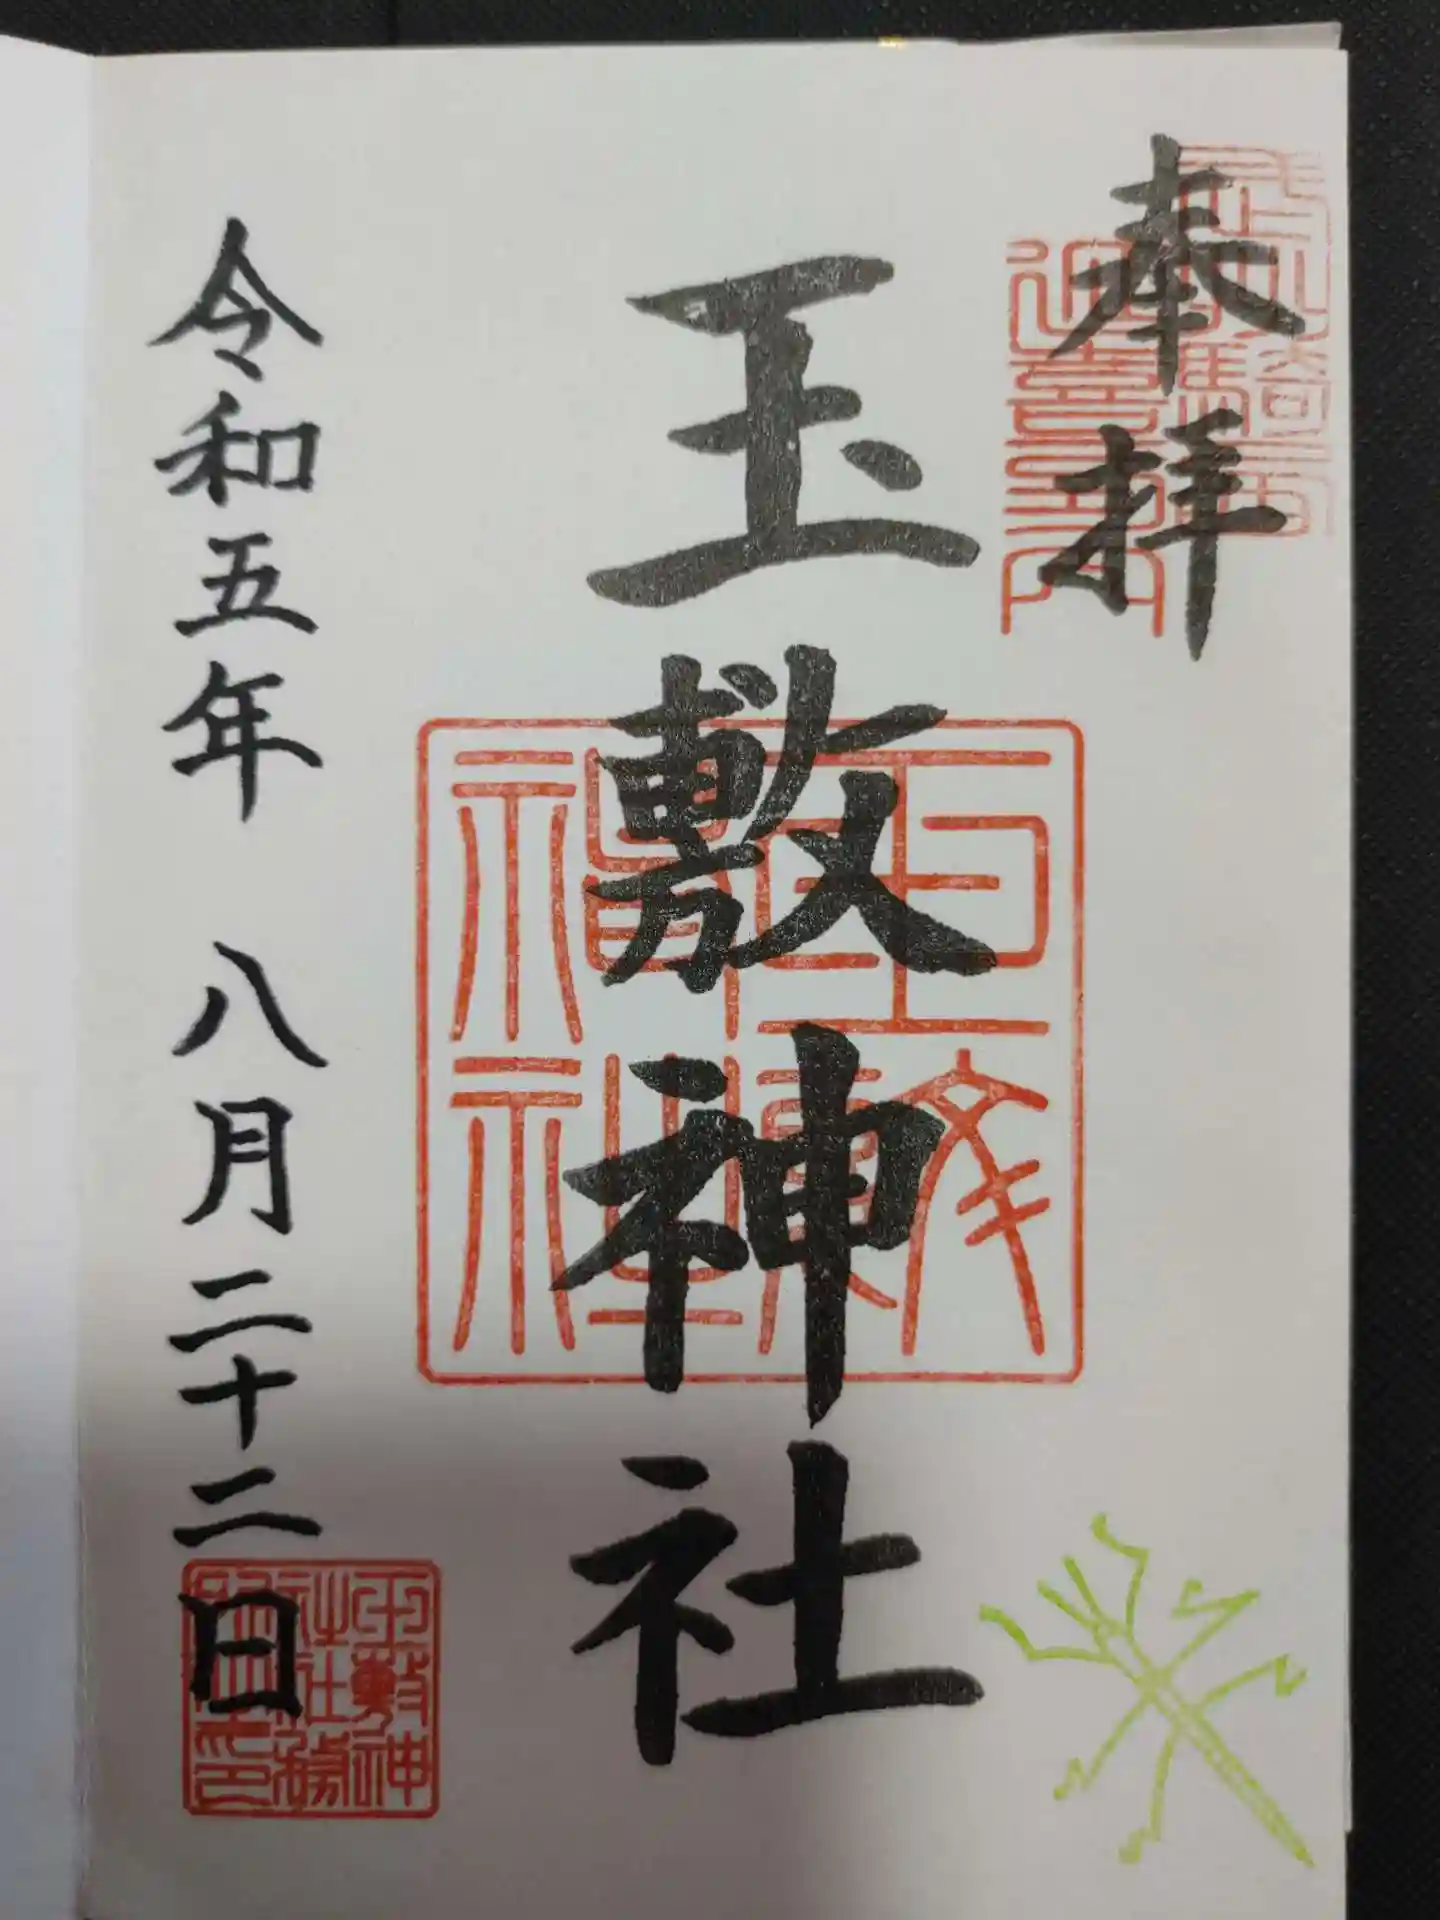 奉拝
玉敷神社
令和五年 八月二十二日
玉敷神
社社務